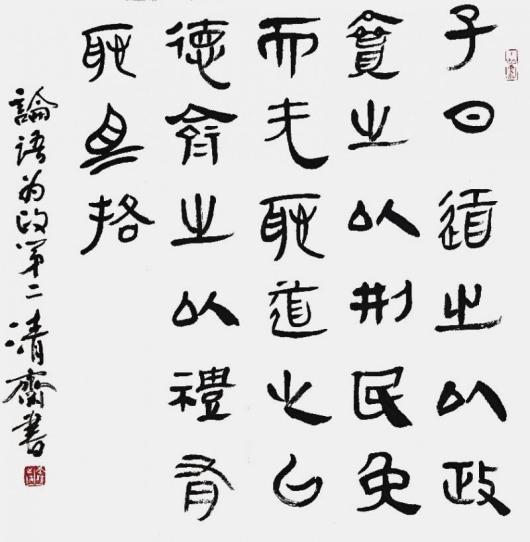 子曰道之以政
齊之以刑民免
而无恥道之以
德齊之以禮有
恥且格
論語为政第二清齋書